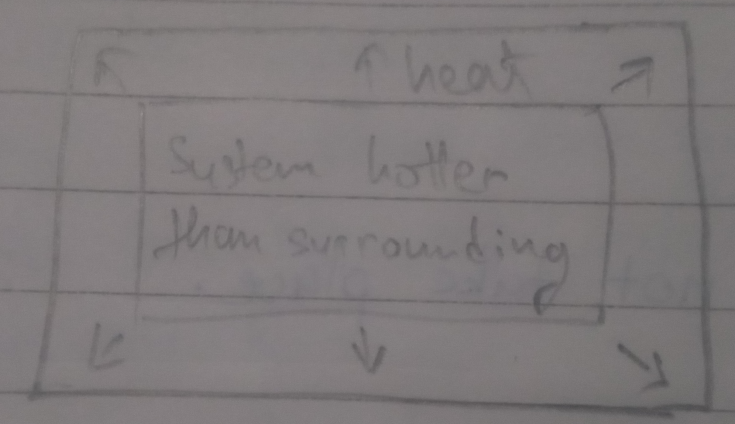 ↑ heat
System hotter
than surrounding